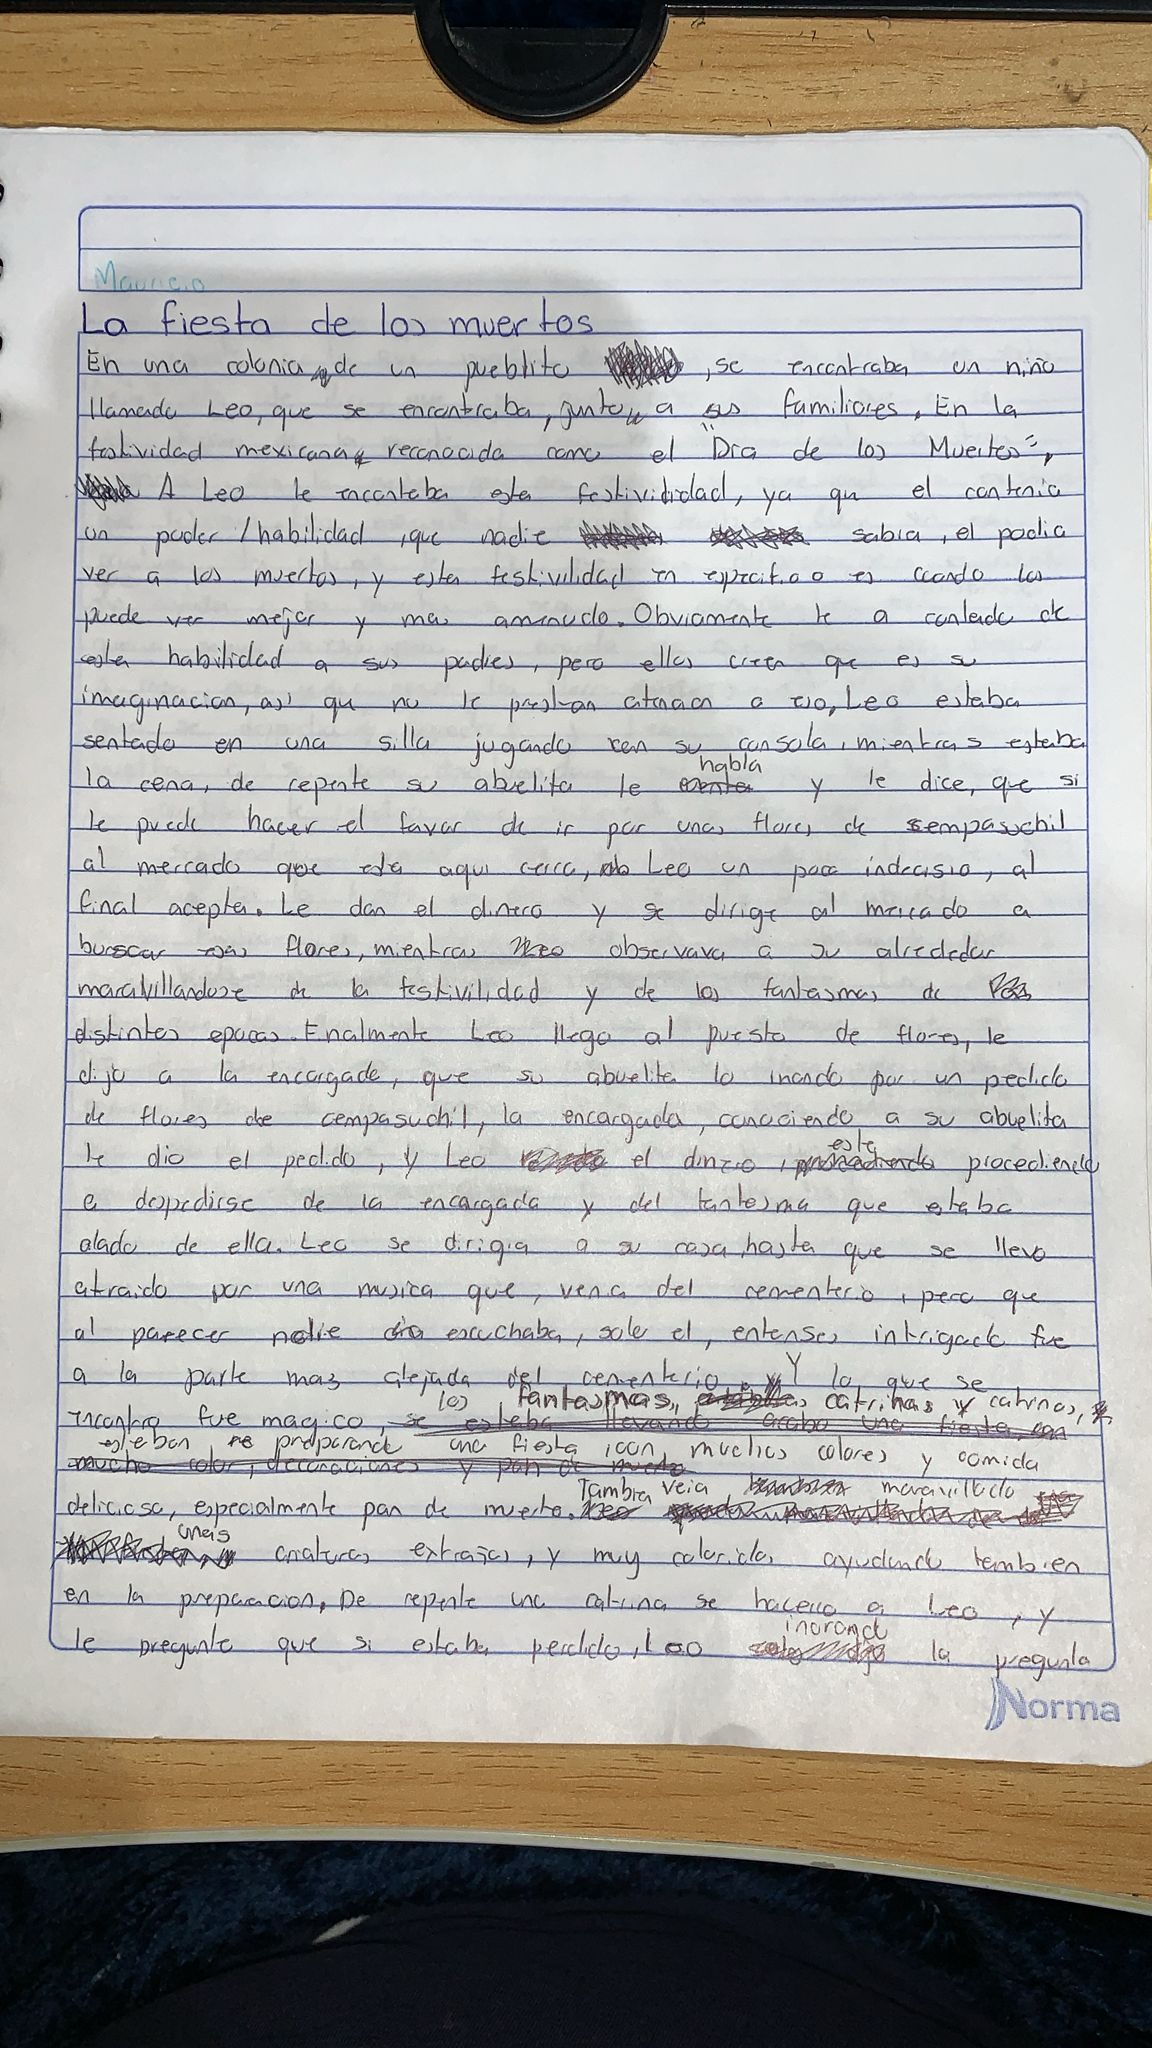 Mauricio
La fiesta de los muertos
En una colonia de un pueblito , se encontraba un niño
llamado Leo, que se encontraba, junto a sus familiares, En la
festividad mexicana reconocida como el "Dia de los Muertos",
A Leo le encantaba esta festivididad, ya que el contenia
un poder / habilidad , que nadie sabia, el podia
ver a los muertos, y esta festivilidad en especifico es cuando los
puede ver mejor y mas amenudo. Obviamente le a contado de
esta habilidad a sus padres, pero ellos creen que es su
imaginacion, asi que no le prestan atencion a eso, Leo estaba
sentado en una silla jugando con su consola, mientras estaba
la cena, de repente su abuelita le habla y le dice, que si
le puede hacer el favor de ir por unas flores de sempasuchil
al mercado que esta aqui cerca, Leo un poco indecisio, al
final acepta. Le dan el dinero y se dirige al mercado a
buscar esas flores, mientras Leo observava a su alrededor
maravillandose de la festivilidad y de los fantasmas de
distintas epocas. Finalmente Leo llego al puesto de flores, le
dijo a la encargada, que su abuelita lo mando por un pedido
de flores de cempasuchil, la encargada, conociendo a su abuelita
le dio el pedido, y Leo el dinero, este procediendo
a despedirse de la encargada y del fantasma que estaba
alado de ella. Leo se dirigia a su casa, hasta que se llevo
atraido por una musica que, venia del cementerio, pero que
al parecer nadie escuchaba, solo el, entonses intrigado fue
a la parte mas alejada del cementerio, Y lo que se
encontro fue magico, los fantasmas, catrinas y catrines,
estaban preparando una fiesta, con, muchos colores y comida
deliciosa, especialmente pan de muerto. Tambien veia maravillado
unas criaturas extrañas, y muy coloridas ayudando tambien
en la preparacion. De repente una catrina se hacerco a Leo, y
le pregunto que si estaba perdido, Leo inorando la pregunta
Norma